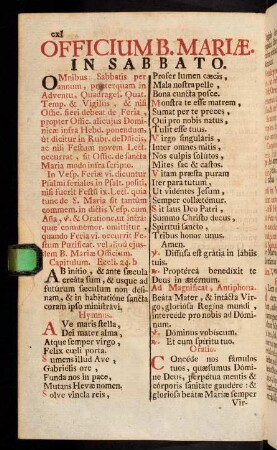 cxl
OFFICIUM B. MARIÆ.
IN SABBATO.
OMnibus Sabbatis per
annum, præterquam in
Adventu, Quadrages. Quat.
Temp. & Vigiliis, & nisi
Offic. fieri debeat de Feria,
propter Offic. alicujus Domi-
nicæ infra Hebd. ponendum,
ut dicitur in Rubr. de Dñicis,
ac nisi Festum novem Lect.
occurrat, fit Offic. de sancta
Maria modo infra scripto.
In Vesp. Feriæ vj. dicuntur
Psalmi feriales in Psalt. positi,
nisi fuerit Festũ ix. Lect. quia
tunc de S. Maria fit tantùm
comm. in dictis Vesp. cum
Aña, ℣. & Oratione, ut infra:
quæ commemor. omittitur,
quando Feria vj. occurrit Fe-
stum Purificat. vel aliud ejus-
dem B. Mariæ Officium.
Capitulum. Eccli. 24. b
AB initio, & ante sæcula
creáta sum, & usque ad
futúrum sæculum non dési-
nam, & in habitatióne sancta
coram ipso ministrávi.
Hymnus.
AVe maris stella,
Dei mater alma,
Atque semper virgo,
Felix cœli porta.
Sumens illud Ave,
Gabriélis ore,
Funda nos in pace,
Mutans Hevæ nomen.
Solve vincla reis,
Profer lumen cæcis,
Mala nostra pelle,
Bona cuncta posce.
Monstra te esse matrem,
Sumat per te preces,
Qui pro nobis natus,
Tulit esse tuus.
Virgo singuláris,
Inter omnes mitis,
Nos culpis solútos,
Mites fac & castos.
Vitam præsta puram
Iter para tutum,
Ut vidéntes Jesum,
Semper collætémur.
Sit laus Deo Patri,
Summo Christo decus,
Spirítui sancto,
Tribus honor unus.
Amen.
℣. Diffúsa est grátia in lábiis
tuis.
℟. Proptérea benedíxit te
Deus in ætérnum.
Ad Magnificat, Antiphona.
Beáta Mater, & intácta Vir-
go, gloriósa Regína mundi,
intercéde pro nobis ad Dómi-
num.
℣. Dóminus vobíscum.
℟. Et cum spíritu tuo.
Oratio.
COncéde nos fámulos
tuos, quæsumus Dómi-
ne Deus, perpétua mentis &
córporis sanitáte gaudére: &
gloriósa beátæ Maríæ semper
Vir-